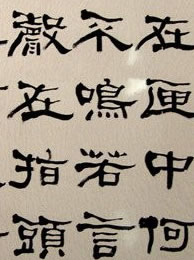 在匣中何
不鳴若言
聲在指頭